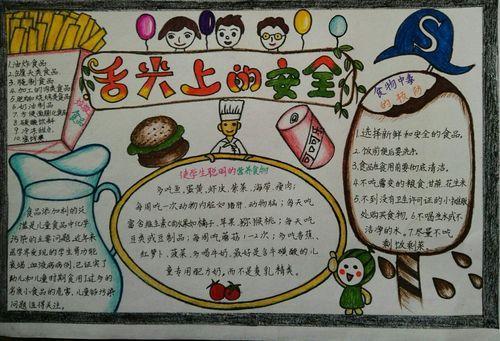 舌尖上的安全
1.油炸食品
2.罐头类食品
3.腌制食品
4.加工的肉类食品
6.奶油制品
7.方便面
8.碳酸饮料
食品
S
食物中毒
的预防
1.选择新鲜和安全的食品.
2.饭前便后要洗手.
3.食品在食用前要彻底清洁.
4.不吃霉变的粮食,甘蔗,花生米
5.不到没有卫生许可证的小摊贩
处购买食物, 6.不喝生水或不
洁净的水, 7.尽量不吃
剩饭剩菜
可口可乐
使学生聪明的营养食物
多吃豆,蛋黄,虾皮,紫菜,海带,瘦肉;
每周吃一次动物内脏如猪肝,动物脑;每天吃
富含维生素C的水果如橘子,苹果,猕猴桃;每天吃
豆类或豆制品;每周吃蘑菇1-2次;多吃香蕉,
红萝卜,菠菜,多喝牛奶,最好是含牛磺酸的儿
童专用配方奶,而不是麦乳精类.
食品添加剂的泛
滥是儿童食品中化学
污染的主要问题,近年来
医学界发现的学生肾功能
衰竭,血液病病例,已证实了
幼儿和儿童时期食用过多的
劣质小食品的危害,儿童的污染
问题值得关注.